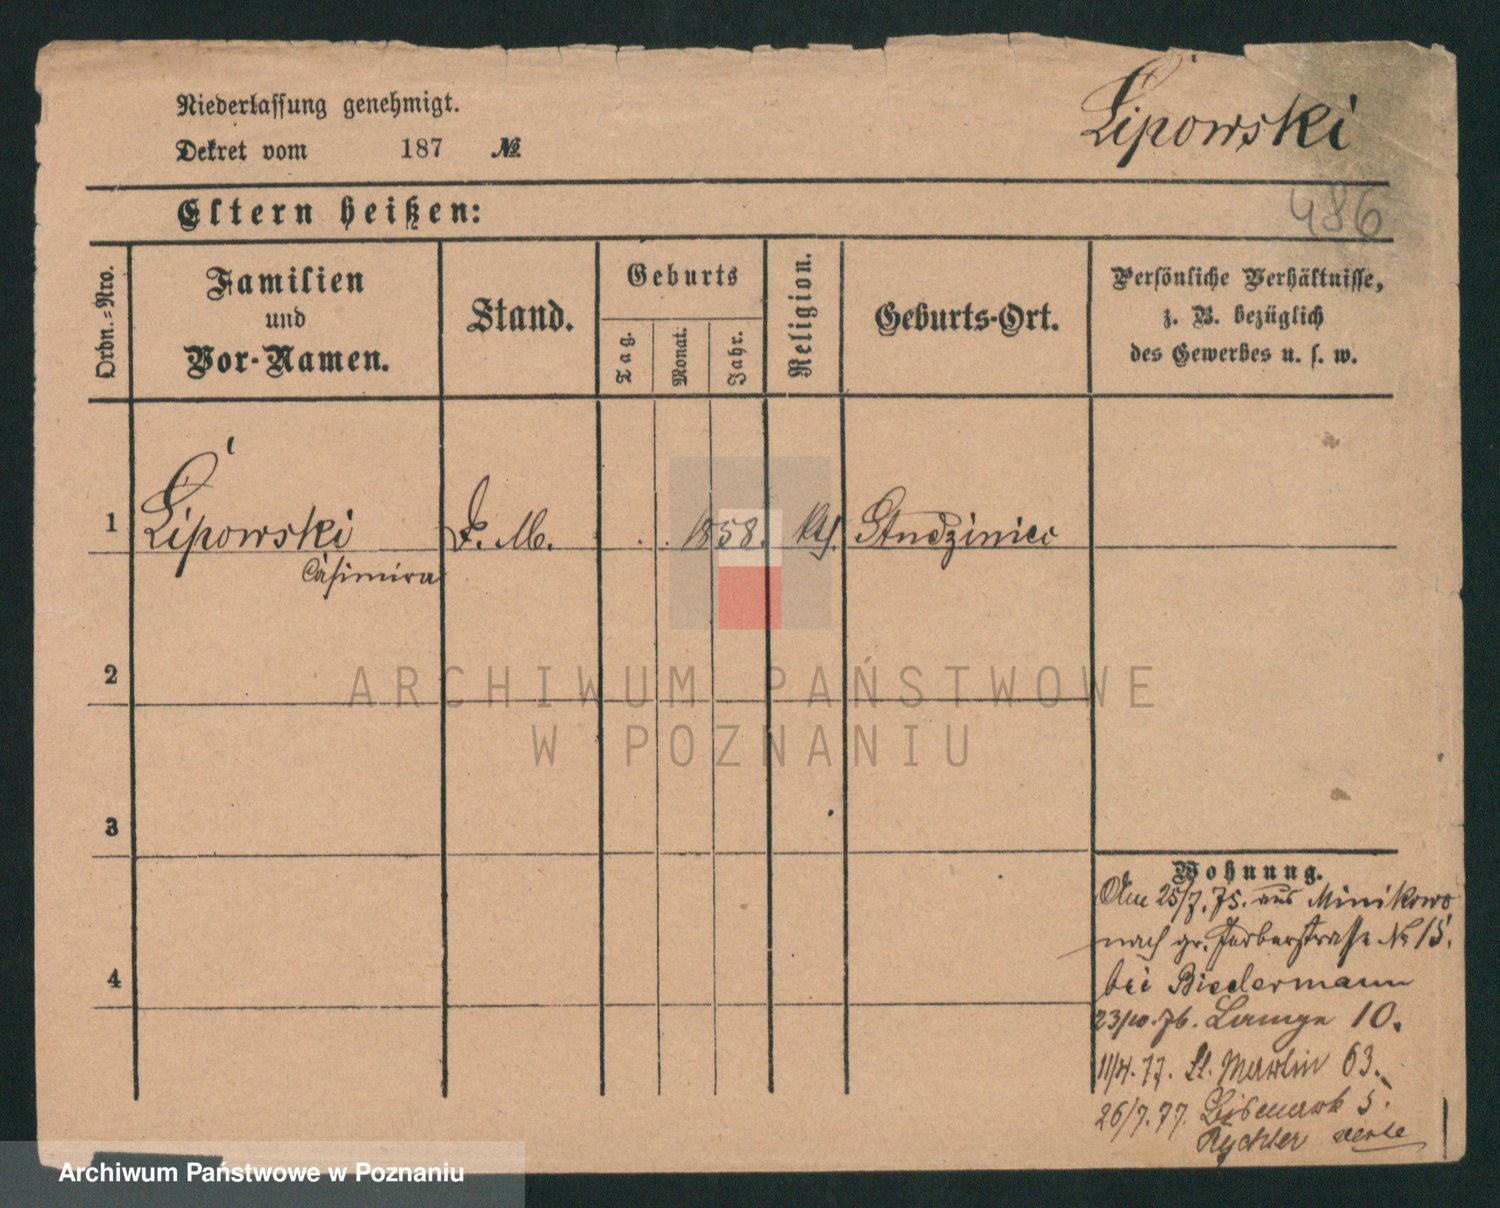 Niederlassung genehmigt.
Lipowski
Dekret vom 187 №
486
Eltern heißen:
Ordn.-Nro.
Familien
und
Vor-Namen.
Stand.
Geburts
Tag.
Monat.
Jahr.
Religion.
Geburts-Ort.
Persönliche Verhältnisse,
z. B. bezüglich
des Gewerbes u. s. w.
1 Lipowski D. M. 1858. Kth. Studziniec
Casimira
2
ARCHIWUM PAŃSTWOWE
W POZNANIU
3
Wohnung.
Am 25/7. 75. aus Minikowo
nach gr. Gerberstrasse № 15.
bei Biedermann
4
23/10. 76. Lange 10.
11/4. 77. St. Martin 63.
26/7. 77. Bismark 5.
Rychter
Archiwum Państwowe w Poznaniu